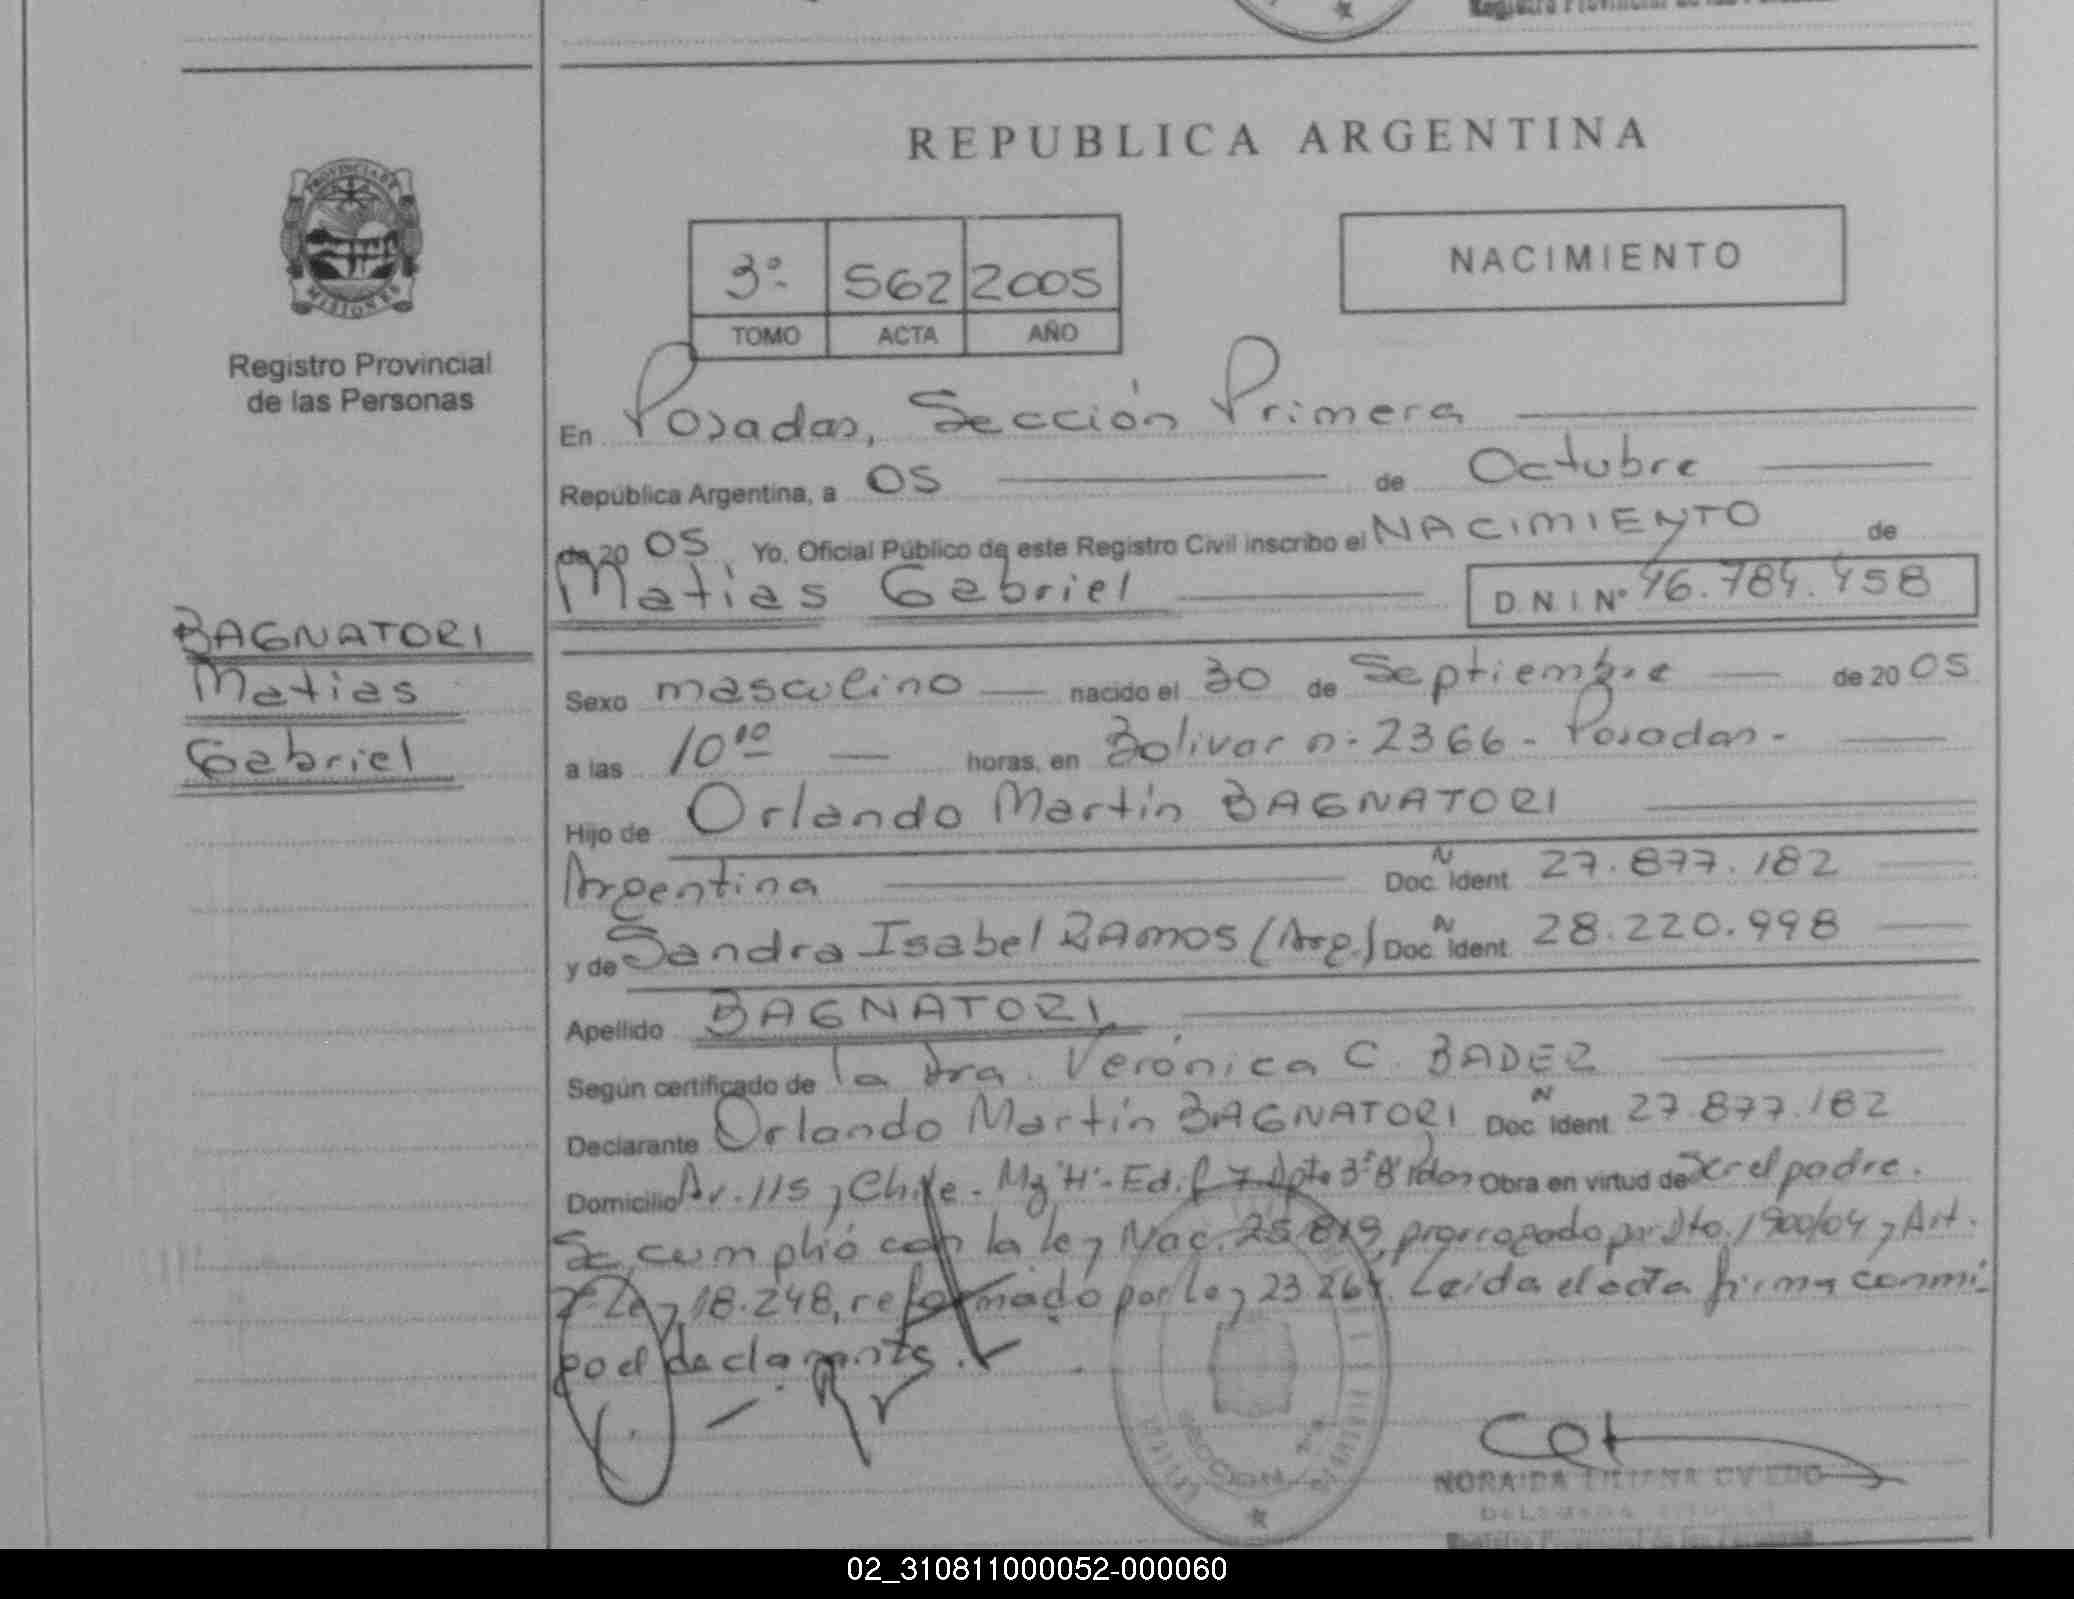 Registro Provincial de las Personas
REPUBLICA ARGENTINA
PROVINCIA DE
MISIONES
Registro Provincial
de las Personas
3º 562 2005
TOMO ACTA AÑO
NACIMIENTO
En Posadas, Sección Primera
República Argentina, a 05 de Octubre
de 20 05 Yo, Oficial Público de este Registro Civil inscribo el NACIMIENTO de
Matias Gabriel D N I Nº 46.784.458
BAGNATORI
Matias
Gabriel
Sexo masculino nacido el 30 de Septiembre de 20 05
a las 10 10 horas, en Bolivar nº 2366 - Posadas -
Hijo de Orlando Martín BAGNATORI
Argentina Doc. Ident. N 27.877.182
y de Sandra Isabel RAMOS (Arg.) Doc. Ident. N 28.220.998
Apellido BAGNATORI
Según certificado de la Dra. Verónica C. BADER
Declarante Orlando Martín BAGNATORI Doc. Ident. N 27.877.182
Domicilio Av. 115 y Chile - Mz "H" - Edif 7 Dpto 3º B Pdas Obra en virtud de ser el padre.
Se cumplió con la ley Nac. 25.819, prorrogado por Dto. 1900/04 y Art.
2º Ley 18.248, reformado por ley 23.264. Leída el acta firma conmi-
go el declarante.
SECCION 1ª
NORAIDA LILIANA OVIEDO
Registro Provincial de las Personas
02_310811000052-000060